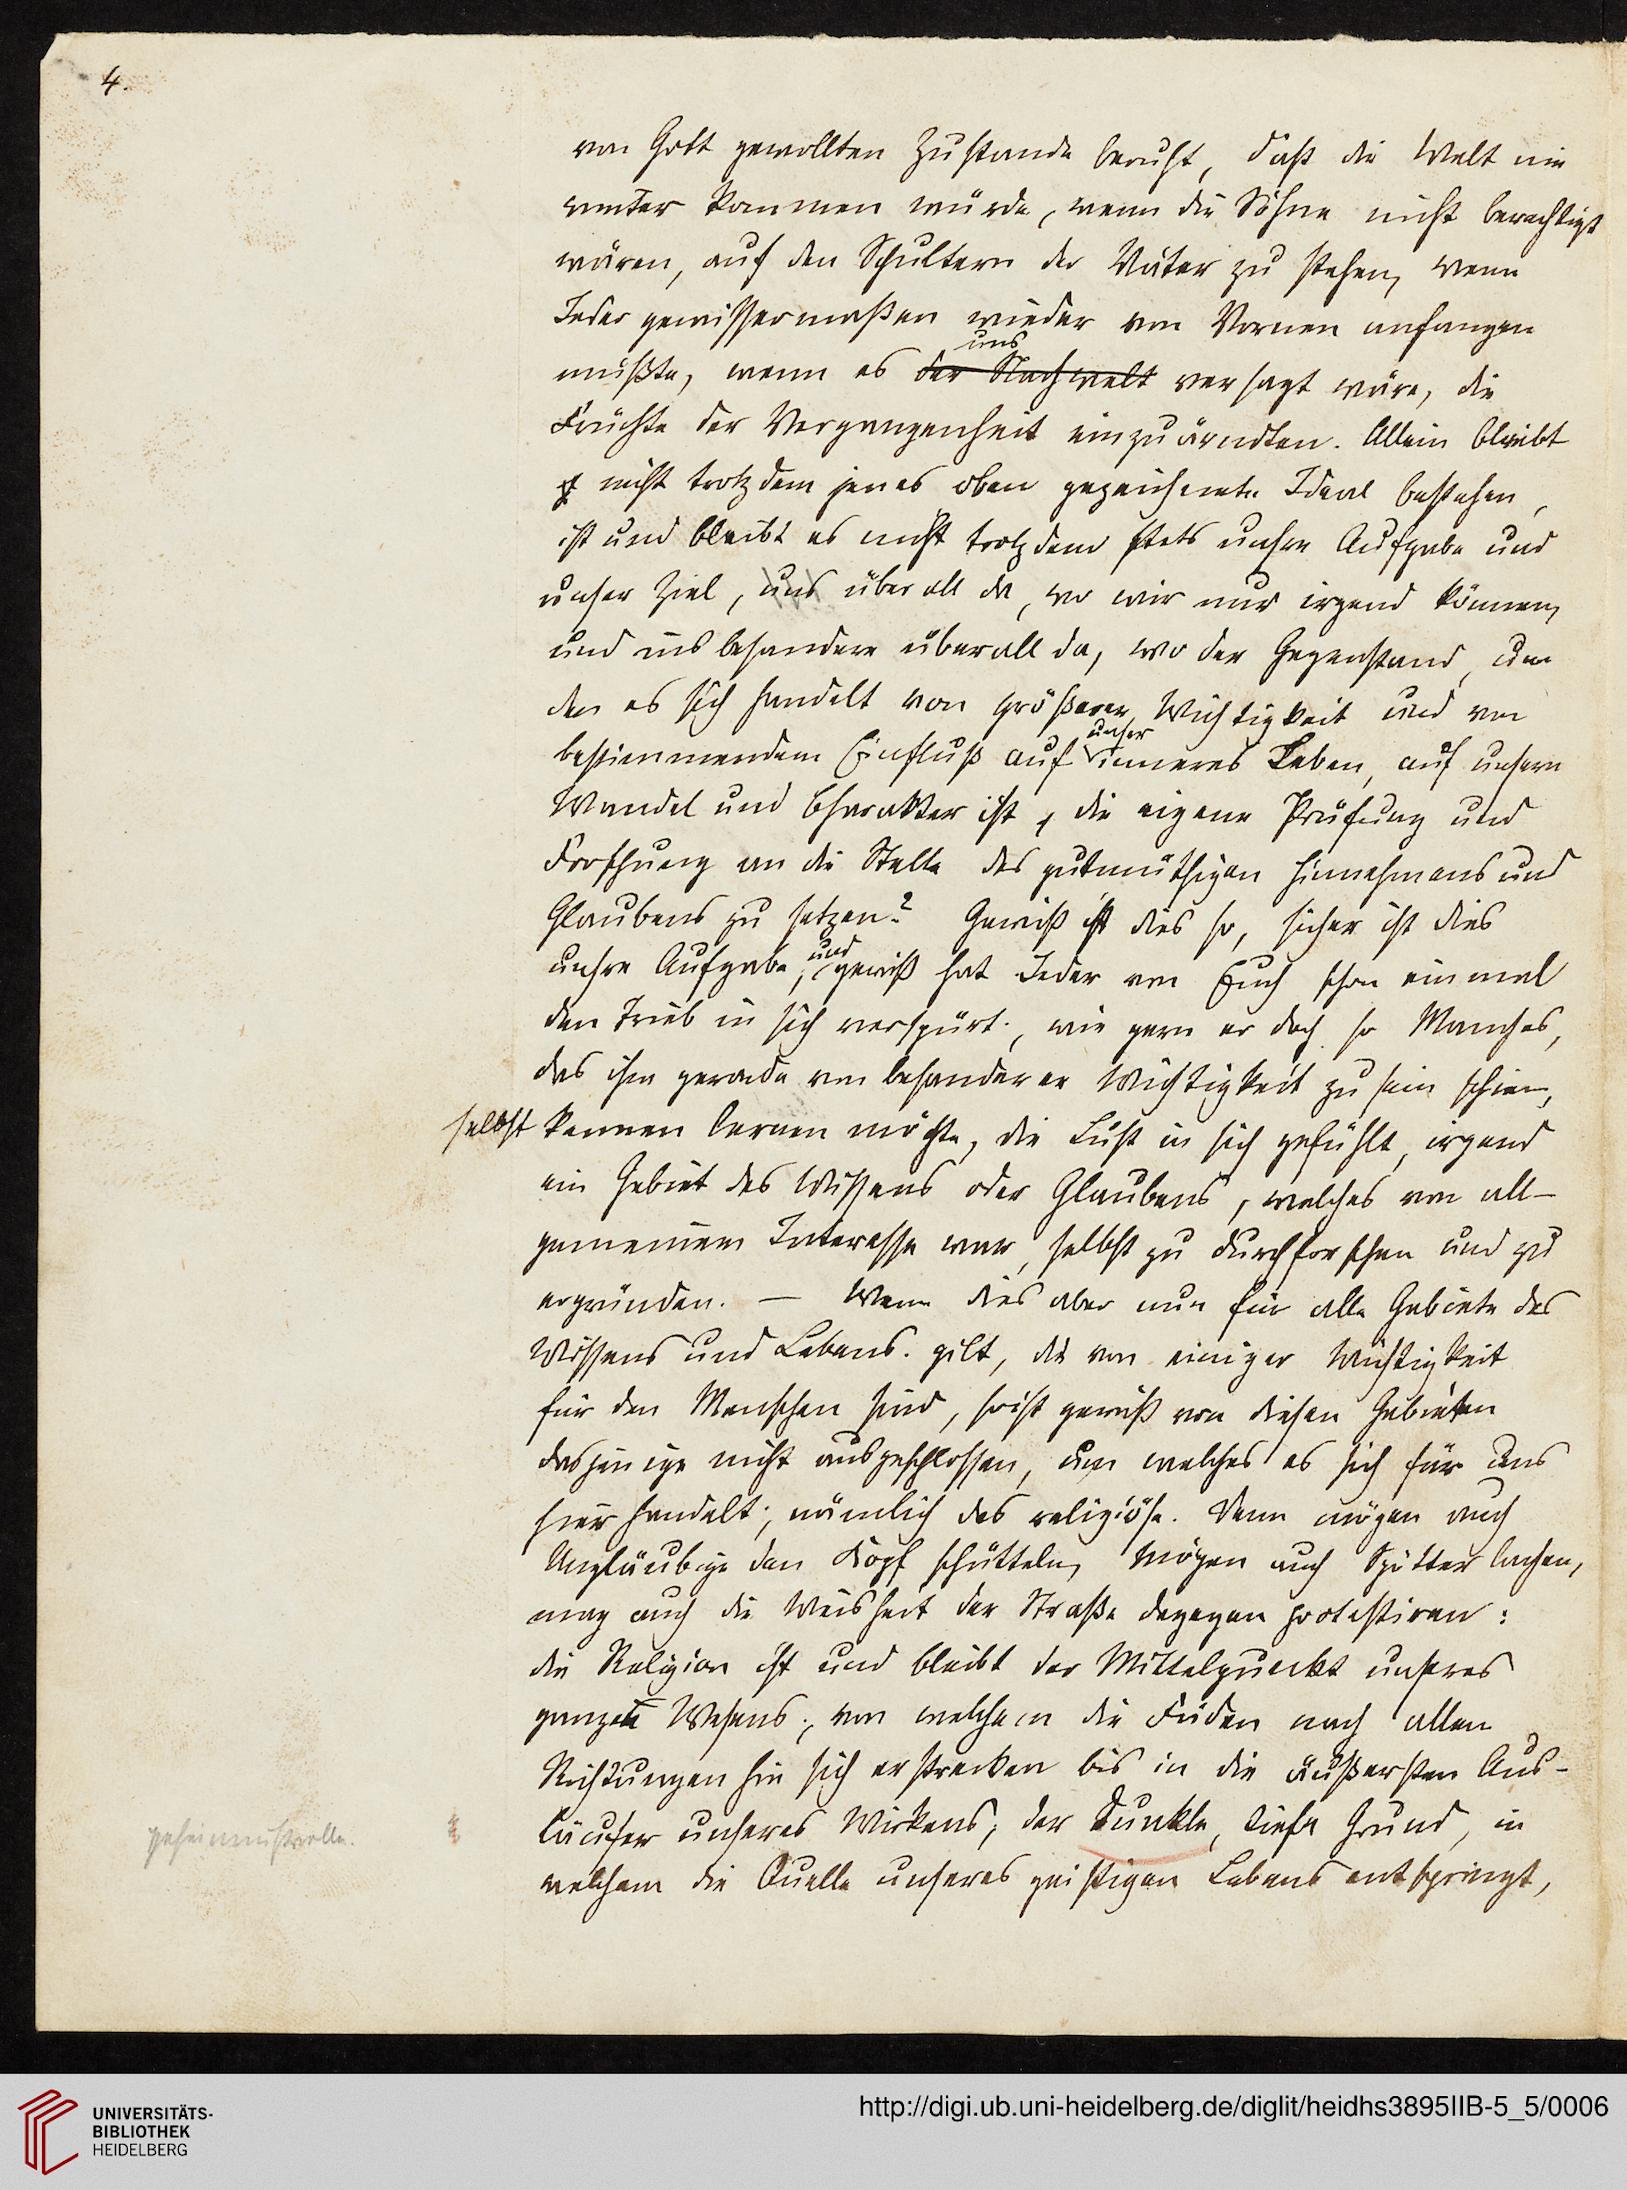 4.
von Gott gewollten Zustande beruht, daß die Welt nie
weiter kommen würde, wenn die Söhne nicht berechtigt
wären, auf den Schultern der Väter zu stehen, wenn
Jeder gewissermaßen wieder von Vornen anfangen
uns
müßte, wenn es der Nachwelt versagt wäre, die
Früchte der Vergangenheit einzuärndten. Allein bleibt
nicht trotzdem jenes oben gezeichnete Ideal bestehen,
ist und bleibt es nicht trotzdem stets unsre Aufgabe und
unser Ziel, uns überall da, wo wir nur irgend können,
und insbesondere überall da, wo der Gegenstand, um
den es sich handelt von größerer Wichtigkeit und von
unser
bestimmendem Einfluß auf inneres Leben, auf unsern
Wandel und Charakter ist, die eigene Prüfung und
Forschung an die Stelle des gutmüthigen Hinnehmens und
Glaubens zu setzen? Gewiß ist dies so, sicher ist dies
und
unsre Aufgabe, gewiß hat Jeder von Euch schon einmal
den Trieb in sich verspürt, wie gern er doch so Manches,
das ihm gerade von besonderer Wichtigkeit zu sein schien,
selbst kennen lernen möchte, die Lust in sich gefühlt, irgend
ein Gebiet des Wissens oder Glaubens, welches von all-
gemeinem Interesse war, selbst zu durchforschen und zu
ergründen. — Wenn dies aber nun für alle Gebiete des
Wissens und Lebens gilt, die von einiger Wichtigkeit
für den Menschen sind, so ist gewiß von diesen Gebieten
dasjenige nicht ausgeschlossen, um welches es sich für uns
hier handelt, nämlich das religiöse. Denn mögen auch
Ungläubige den Kopf schütteln, mögen auch Spötter lachen,
mag auch die Weisheit der Straße dagegen protestiren:
die Religion ist und bleibt der Mittelpunkt unseres
ganzen Wesens, von welchem die Fäden nach allen
Richtungen hin sich erstrecken bis in die äußersten Aus-
läufer unseres Wirkens, der dunkle, tiefe Grund, in
geheimnißvolle.
welchem die Quelle unseres geistigen Lebens entspringt,
UNIVERSITÄTS-
BIBLIOTHEK
HEIDELBERG
http://digi.ub.uni-heidelberg.de/diglit/heidhs3895IIB-5_5/0006